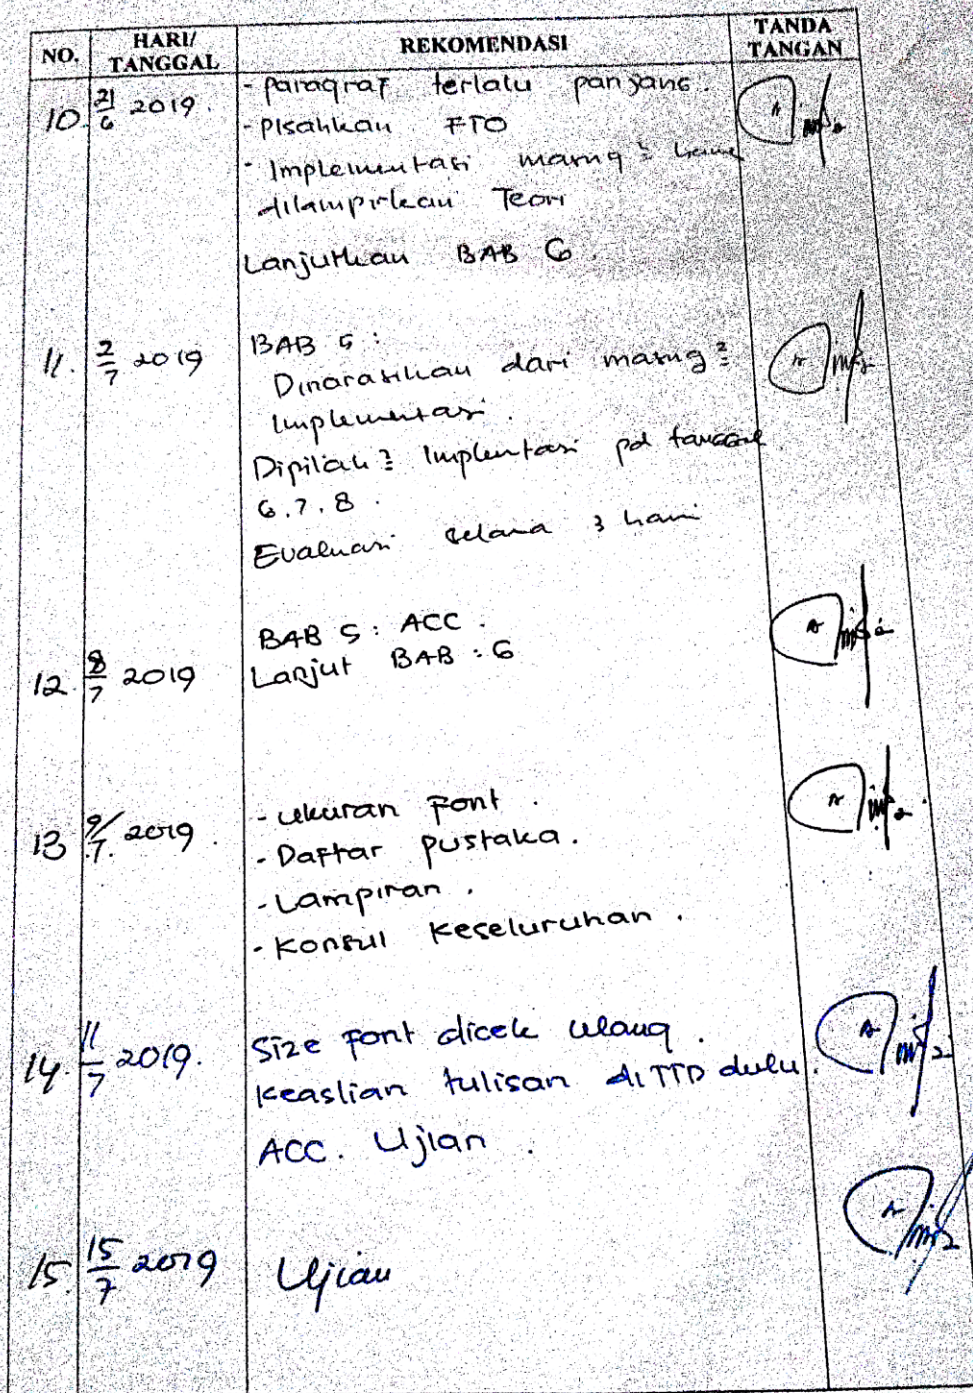 NO. HARI/ TANGGAL REKOMENDASI TANDA TANGAN
10. 21/6 2019. - paragraf terlalu panjang.
- Pisahkan FTO
- Implementasi masing2
dilampirkan Teori
Lanjutkan BAB 6.
11. 2/7 2019 BAB 5 :
Dinarasikan dari masing2
Implementasi.
Dipilah2 Implentasi pd tanggal
6.7.8.
Evaluasi selama 3 hari
12. 8/7 2019 BAB 5 : ACC.
Lanjut BAB : 6
13 9/7. 2019. - Ukuran Font.
- Daftar pustaka.
- Lampiran.
- Konsul Keseluruhan.
14. 11/7 2019. Size font dicek ulang.
Keaslian tulisan di TTD dulu.
ACC. Ujian.
15. 15/7 2019 Ujian